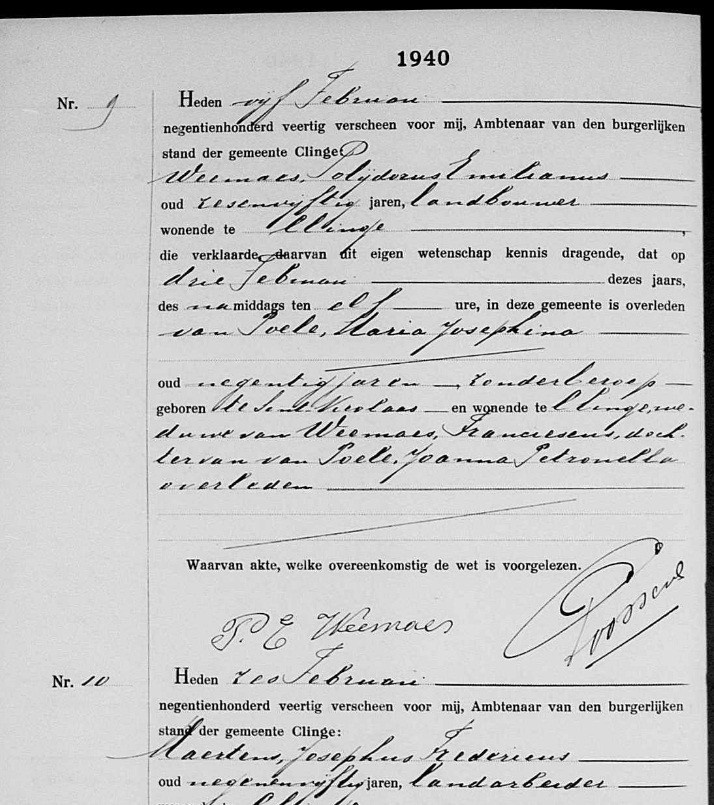 1940
Nr. 9 Heden vijf Februari
negentienhonderd veertig verscheen voor mij, Ambtenaar van den burgerlijken
stand der gemeente Clinge:
Weemaes, Polijdorus Emilianus
oud zesenvijftig jaren, landbouwer
wonende te Clinge,
die verklaarde, daarvan uit eigen wetenschap kennis dragende, dat op
drie Februari dezes jaars,
des namiddags ten elf ure, in deze gemeente is overleden
van Poele, Maria Josephina
oud negentig jaren, zonder beroep
geboren te Sint Nicolaas en wonende te Clinge, we-
duwe van Weemaes, Franciescus, doch-
ter van van Poele, Joanna Petronella
overleden
Waarvan akte, welke overeenkomstig de wet is voorgelezen.
P. E Weemaes
Nr. 10 Heden zes Februari
negentienhonderd veertig verscheen voor mij, Ambtenaar van den burgerlijken
stand der gemeente Clinge:
Maertens, Josephus Fredericus
oud negenenvijftig jaren, landarbeider